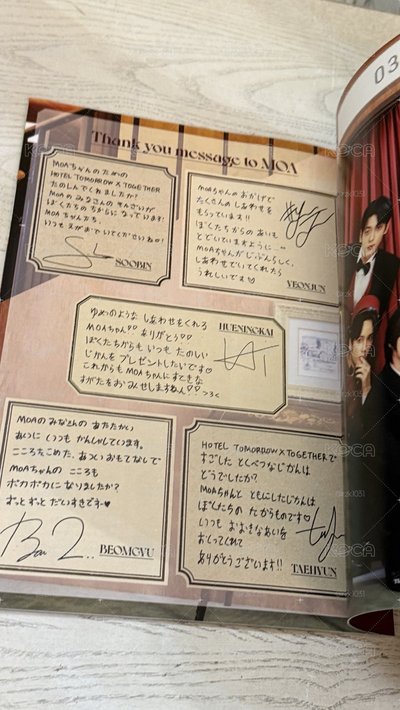 03
Thank you message to MOA
MOAちゃんのための
HOTEL TOMORROW X TOGETHER
たのしんでくれましたか?
MOAのみなさんのそんざいが
ぼくたちのちからになっています!
MOAちゃんたち、
いつもえがおでいてくださいね!
SOOBIN
MOAちゃんのおかげで
たくさんのしあわせを
もらっています!!
ぼくたちからのあいも
とどいていますように...
MOAちゃんがじぶんらしく、
しあわせでいてくれたら
うれしいです♡
YEONJUN
ゆめのような しあわせをくれる
MOAちゃん♡ ありがとう♡♡
ぼくたちからも いつも たのしい
じかんを プレゼントしたいです♡
これからも MOAちゃんに すてきな
すがたを おみせしますね!
HUENINGKAI
MOAのみなさんの あたたかい
あいに いつも かんしゃしています。
こころをこめた、あついおもてなしで
MOAちゃんの こころも
ポカポカになりましたか?
ずっとずっと だいすきです♥
BEOMGYU
HOTEL TOMORROW X TOGETHERで
すごした とくべつなじかんは
どうでしたか?
MOAちゃんと ともにしたじかんは
ぼくたちの たからものです♡
いつも おおきなあいを
おくってくれて
ありがとうございます!!
TAEHYUN
KOCA